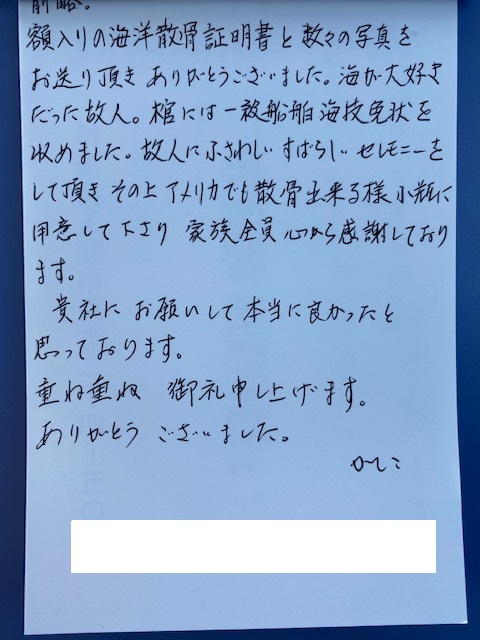 前略。
額入りの海洋散骨証明書と数々の写真を
お送り頂きありがとうございました。海が大好き
だった故人。棺には一般船舶海技免状を
収めました。故人にふさわしいすばらしいセレモニーを
して頂きその上アメリカでも散骨出来る様小瓶に
用意して下さり 家族全員心から感謝しており
ます。
貴社にお願いして本当に良かったと
思っております。
重ね重ね 御礼申し上げます。
ありがとうございました。
かしこ